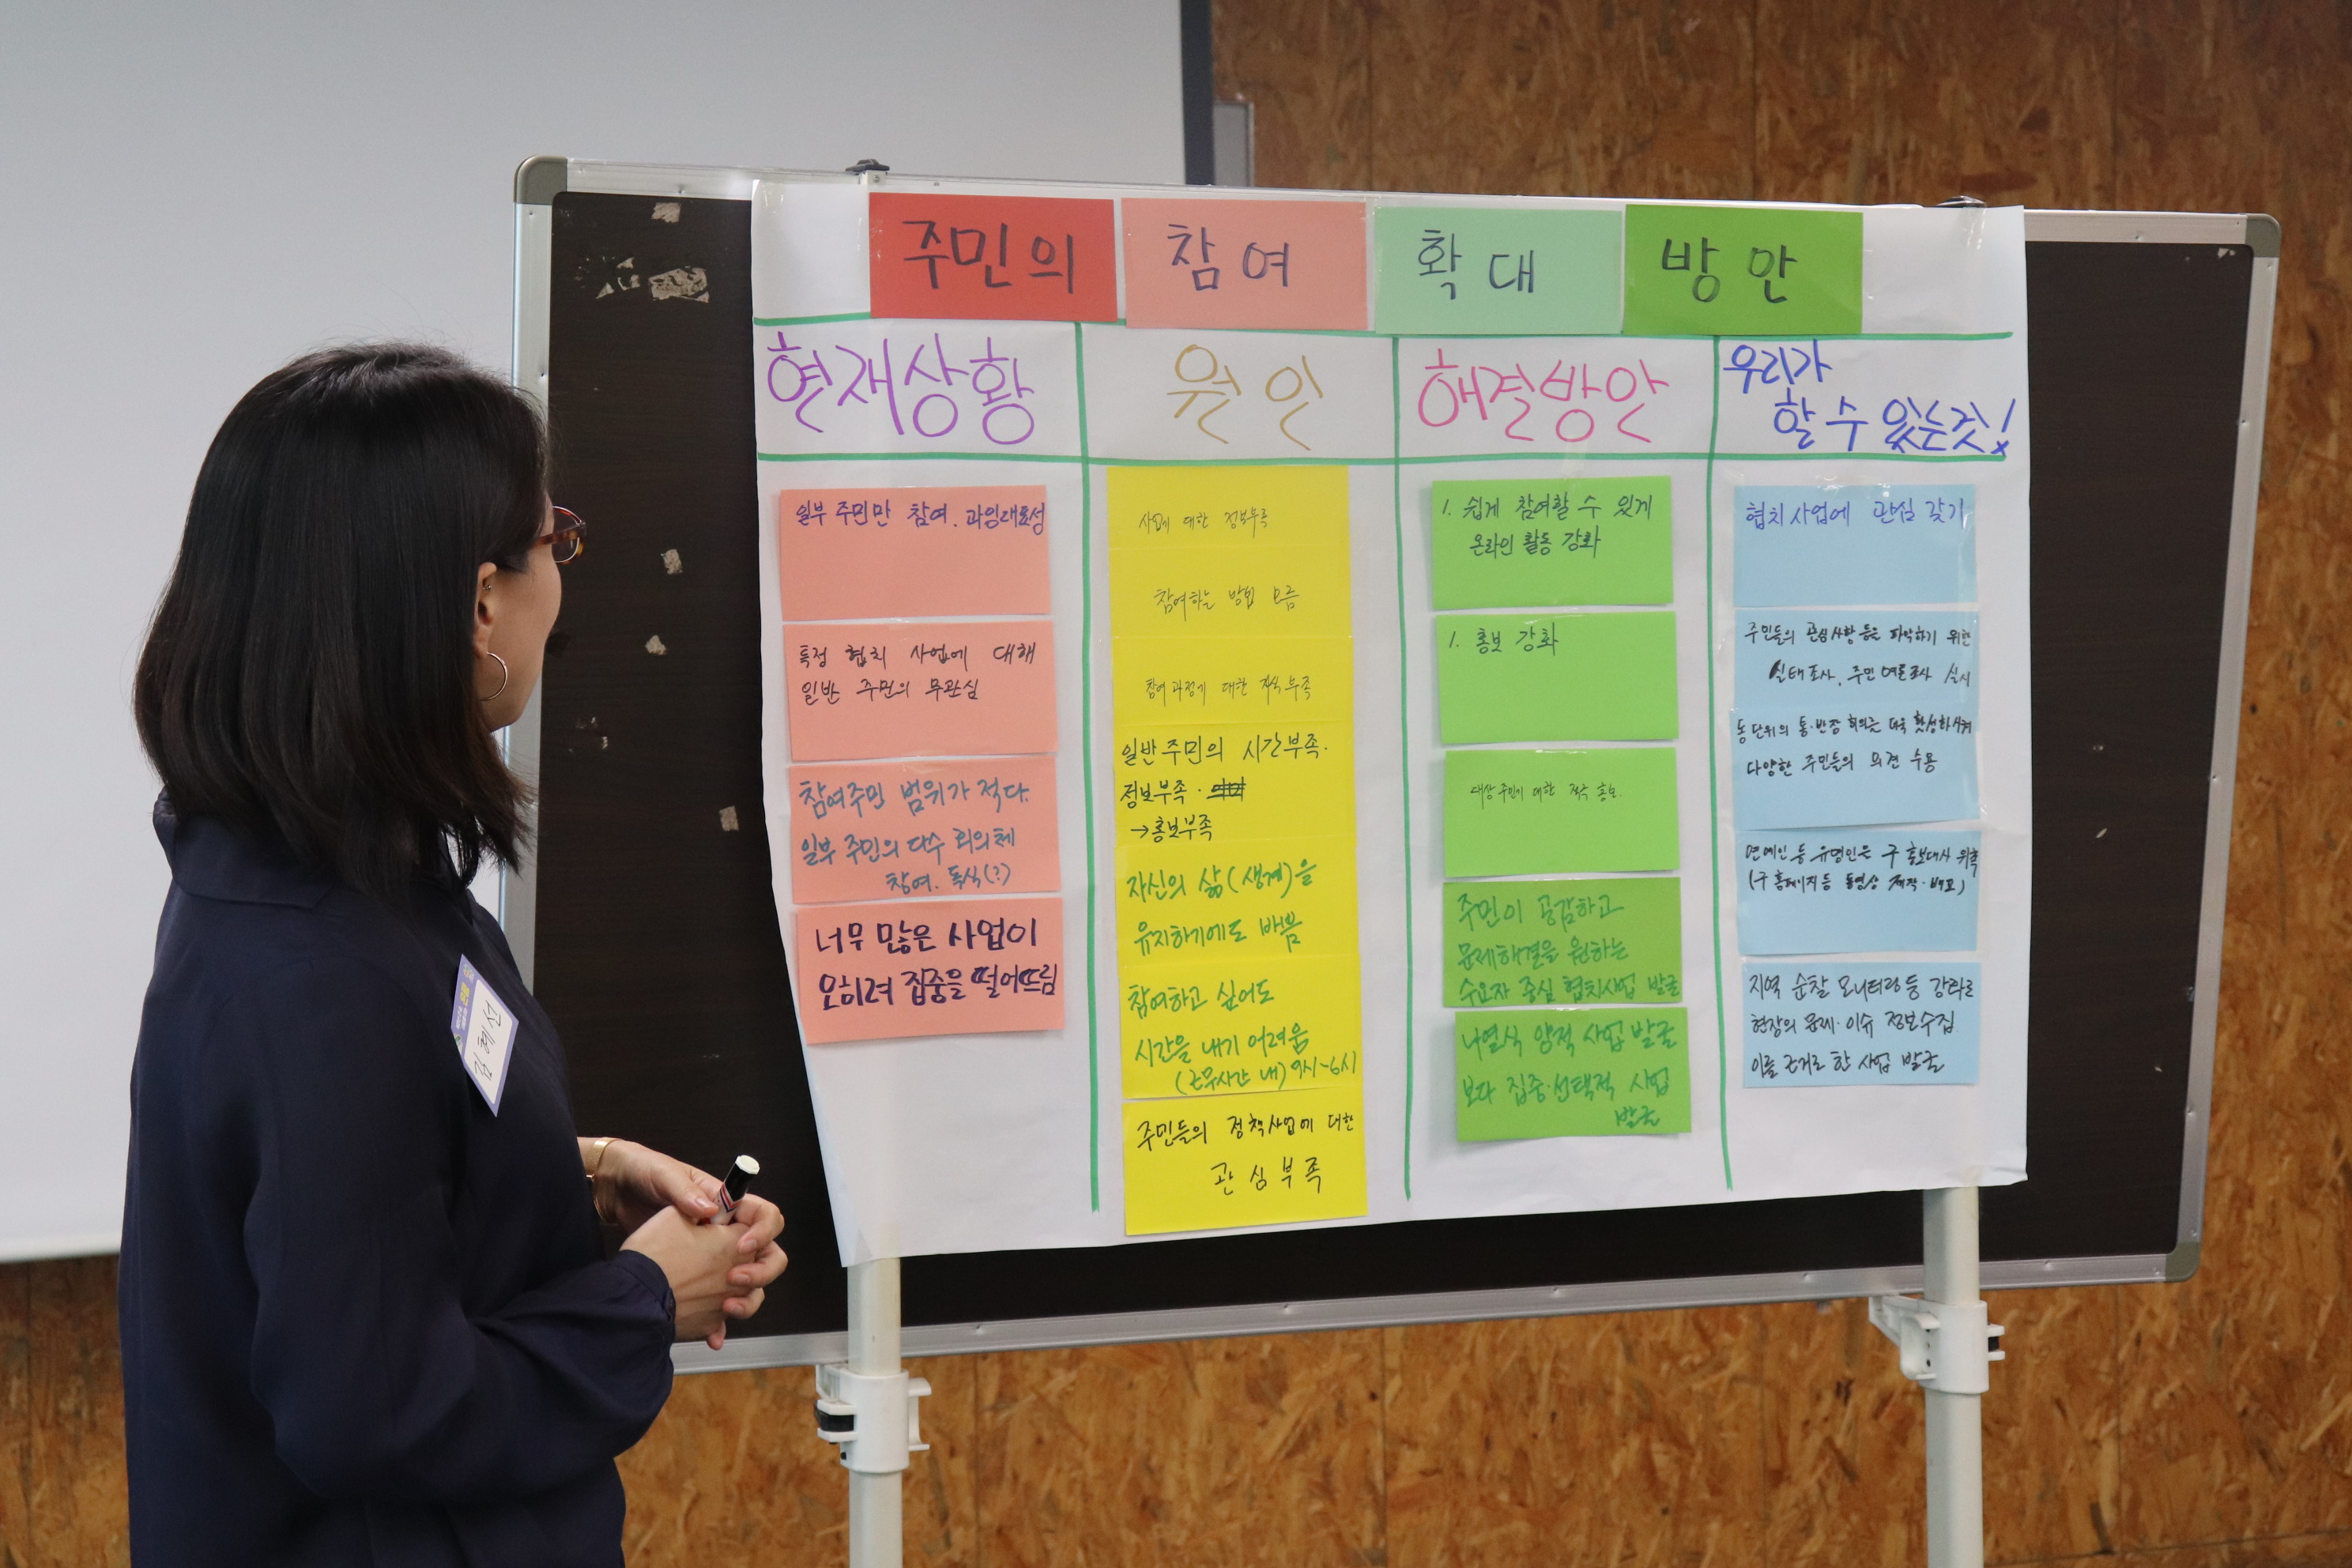 주민의 참여 확대 방안
현재상황
일부 주민만 참여. 과잉대표성
특정 협치 사업에 대해
일반 주민의 무관심
참여주민 범위가 적다.
일부 주민의 다수 회의체
참여. 독식(?)
너무 많은 사업이
오히려 집중을 떨어뜨림
원인
사업에 대한 정보부족
참여하는 방법 모름
참여과정에 대한 지식 부족
일반주민의 시간부족.
정보부족.
→홍보부족
자신의 삶(생계)을
유지하기에도 바쁨
참여하고 싶어도
시간을 내기 어려움
(근무시간 내) 9시~6시
주민들의 정책사업에 대한
관심부족
해결방안
1. 쉽게 참여할 수 있게
온라인 활동 강화
1. 홍보 강화
대상 주민에 대한 적극 홍보.
주민이 공감하고
문제해결을 원하는
수요자 중심 협치사업 발굴
나열식 양적 사업 발굴
보다 집중·선택적 사업
발굴
우리가
할 수 있는것!
협치사업에 관심 갖기
주민들의 관심사항 등을 파악하기 위한
실태조사, 주민여론조사 실시
동단위의 통·반장 회의를 더욱 활성화시켜
다양한 주민들의 의견 수용
연예인 등 유명인을 구 홍보대사 위촉
(구 홈페이지 등 동영상 제작·배포)
지역 순찰 모니터링 등 강화로
현장의 문제·이슈 정보수집
이를 근거로 한 사업 발굴
김혜선